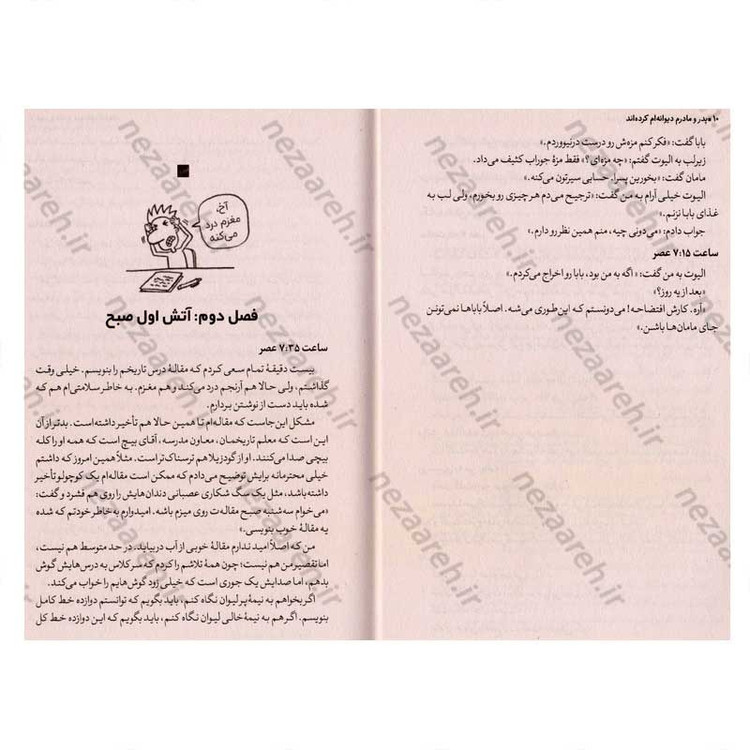 ۱۰ • پدر و مادرم دیوانه‌ام کرده‌اند
بابا گفت: «فکر کنم مزه‌ش رو درست درنیووردم.»
زیرلب به الیوت گفتم: «چه مزه‌ای؟» فقط مزهٔ جوراب کثیف می‌داد.
مامان گفت: «بخورین پسرا، حسابی سیرتون می‌کنه.»
الیوت خیلی آرام به من گفت: «ترجیح می‌دم هر چیزی رو بخورم، ولی لب به
غذای بابا نزنم.»
جواب دادم: «می‌دونی چیه، منم همین نظر رو دارم.»
ساعت ۷:۱۵ عصر
الیوت به من گفت: «اگه به من بود، بابا رو اخراج می‌کردم.»
«بعد از یه روز؟»
«آره. کارش افتضاحه! می‌دونستم که این‌طوری می‌شه. اصلاً باباها نمی‌تونن
جای مامان‌ها باشن.»
آخ،
مغزم درد
می‌کنه
فصل دوم: آتش اول صبح
ساعت ۷:۳۵ عصر
بیست دقیقهٔ تمام سعی کردم که مقالهٔ درس تاریخم را بنویسم. خیلی وقت
گذاشتم، ولی حالا هم آرنجم درد می‌کند و هم مغزم. به خاطر سلامتی‌ام هم که
شده باید دست از نوشتن بردارم.
مشکل این‌جاست که مقاله‌ام تا همین حالا هم تأخیر داشته است. بدتر از آن
این است که معلم تاریخمان، معاون مدرسه، آقای بیچ است که همه او را کله
بیچی صدا می‌کنند. او از گودزیلا هم ترسناک‌تر است. مثلاً همین امروز که داشتم
خیلی محترمانه برایش توضیح می‌دادم که ممکن است مقاله‌ام یک کوچولو تأخیر
داشته باشد، مثل یک سگ شکاری عصبانی دندان‌هایش را روی هم فشرد و گفت:
«می‌خوام سه‌شنبه صبح مقاله‌ت روی میزم باشه. امیدوارم به خاطر خودتم که شده
یه مقالهٔ خوب بنویسی.»
من که اصلاً امید ندارم مقالهٔ خوبی از آب دربیاید. در حد متوسط هم نیست،
اما تقصیر من هم نیست؛ چون همهٔ تلاشم را کردم که سر کلاس به درس‌هایش گوش
بدهم، اما صدایش یک جوری است که خیلی زود گوش‌هایم را خواب می‌کند.
اگر بخواهم به نیمهٔ پر لیوان نگاه کنم، باید بگویم که توانستم دوازده خط کامل
بنویسم. اگر هم به نیمهٔ خالی لیوان نگاه کنم، باید بگویم که این دوازده خط کل
nezaareh.ir
nezaareh.ir
nezaareh.ir
nezaareh.ir
nezaareh.ir
nezaareh.ir
nezaareh.ir
nezaareh.ir
nezaareh.ir